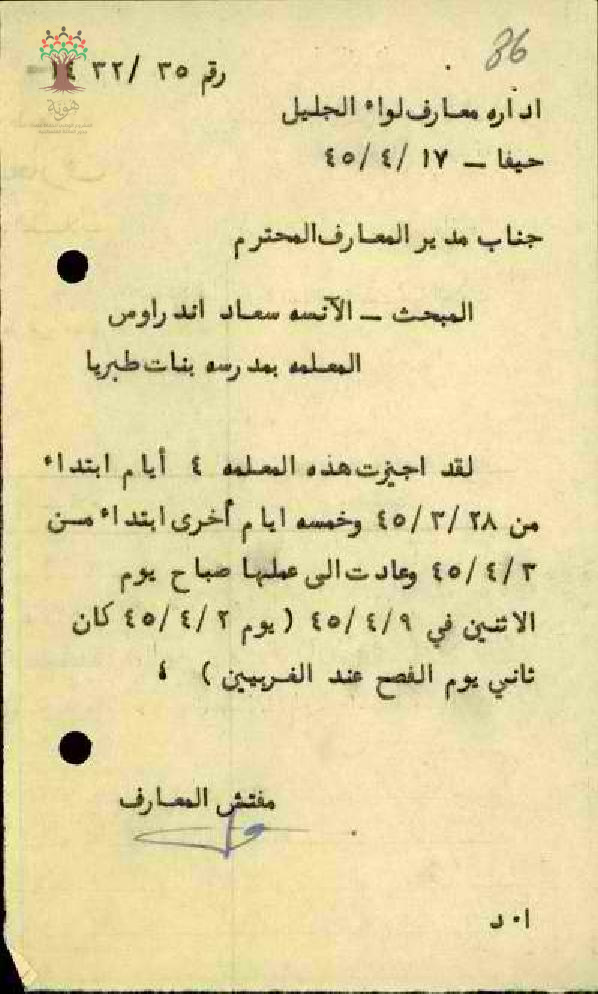 36
رقم ٣٥ /٣٢ ١٤
هوية
اداره معارف لواء الجليل
حيفا ــ ١٧ /٤ /٤٥
جناب مدير المعارف المحترم
المبحث ــ الآنسه سعاد اندراوس
المعلمه بمدرسه بنات طبريا
لقد اجيزت هذه المعلمه ٤ أيام ابتداء
من ٢٨ /٣ /٤٥ وخمسه ايام أخرى ابتداء مـن
٤٥/٤/٣ وعادت الى عملها صباح يوم
الاثنين في ٤٥/٤/٩ ( يوم ٤٥/٤/٢ كان
ثاني يوم الفصح عند الغربيين ) ؛
مفتش المعارف
ا٠ د